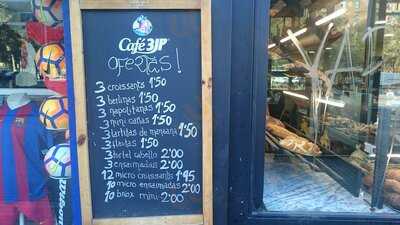 Café 3JP
OFERTAS!
3 croissents 1'50
3 berlinas 1'50
3 napolitanas 1'50
3 mini cañas 1'50
3 tartitas de manzana 1'50
3 llavias 1'50
3 tortel cabello 2'00
3 enseimadas 2'00
12 micro croissants 1'95
10 micro enseimadas 2'00
10 brox mini 2'00